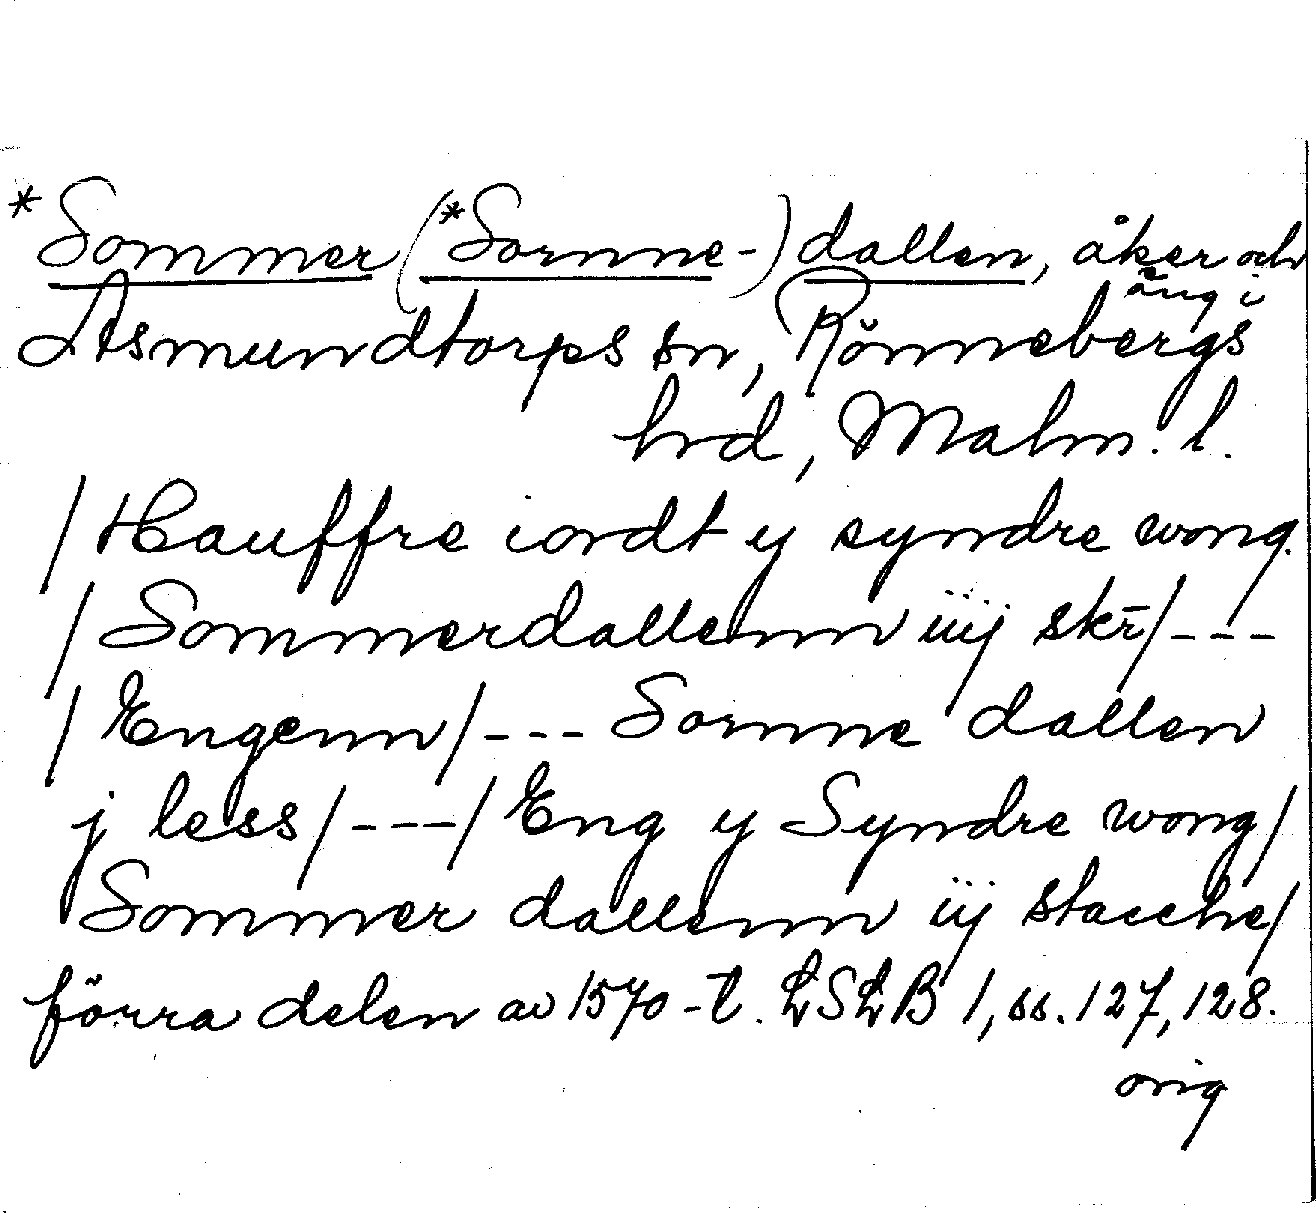 *Sommer (*Somne-) dallen, åker och
äng i
Asmundtorps sn, Rönnebergs
hrd, Malm. l.
/Hauffre iordt y syndre wong
/Sommerdallenn iiij skr̄/---
/Engenn/--- Somne dallen
j less/---/Eng y Syndre wong/
Sommer dallenn iij stacche/
förra delen av 1570-t. LSLB 1, ss. 127, 128.
orig